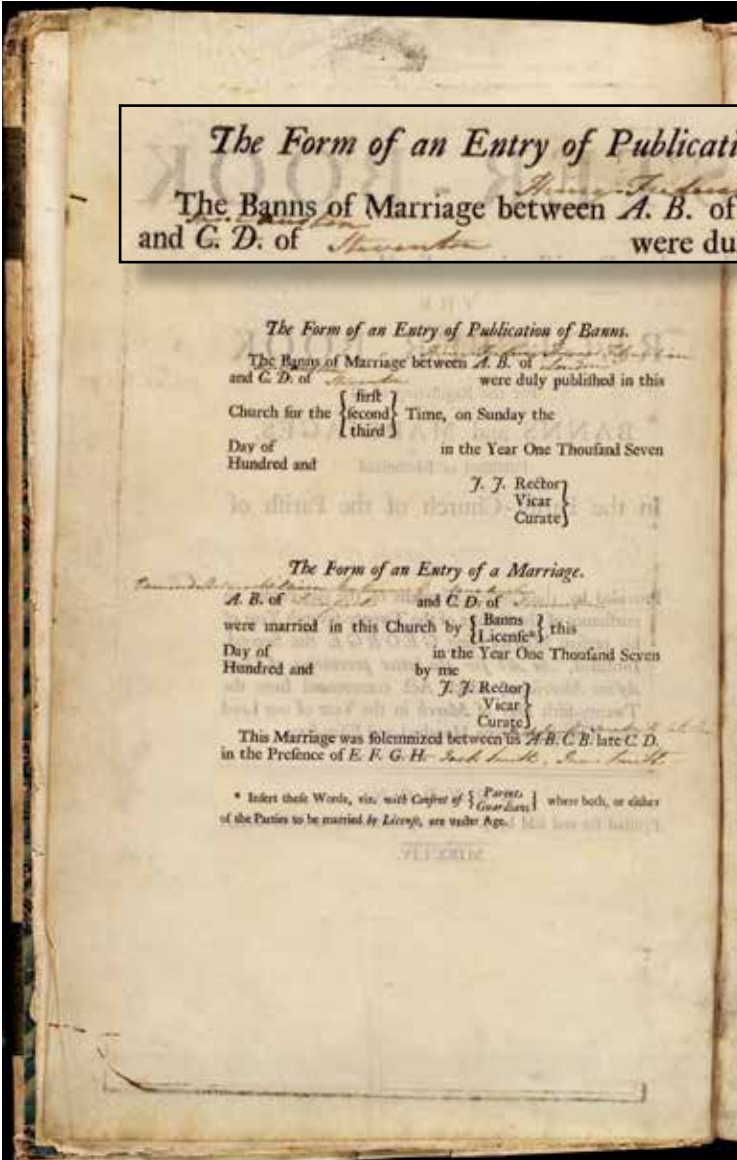 The Form of an Entry of Publicati
Henry Frederic
The Banns of Marriage between A. B. of
and C. D. of Steventon were du
The Form of an Entry of Publication of Banns.
The Banns of Marriage between A. B. of London
and C. D. of Steventon were duly publiſhed in this
Church for the { firſt ſecond third } Time, on Sunday the
Day of in the Year One Thouſand Seven
Hundred and
J. J. Rector
Vicar
Curate
The Form of an Entry of a Marriage.
A. B. of and C. D. of
were married in this Church by { Banns Licenſe* } this
Day of in the Year One Thouſand Seven
Hundred and by me
J. J. Rector
Vicar
Curate
This Marriage was ſolemnized between us A. B. C. B. late C. D.
in the Preſence of E. F. G. H. Jack Smith, Jane Smith.
* Inſert theſe Words, viz. with Conſent of { Parents Guardians } where both, or either
of the Parties to be married by Licenſe, are under Age.